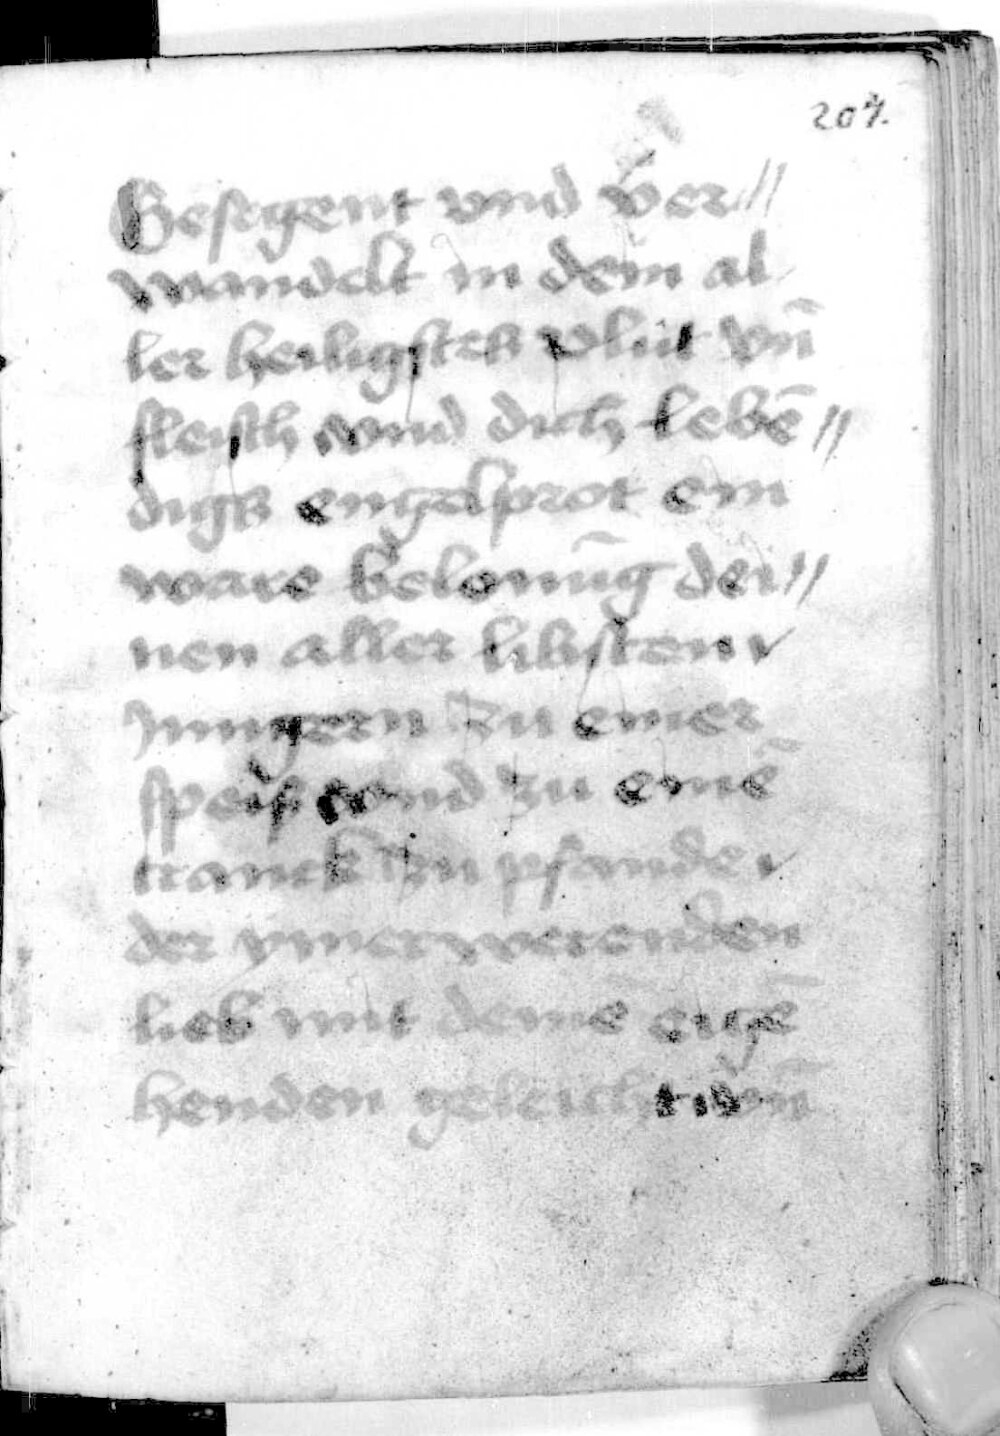 207.
Gesegent vnd ver//
wandelt in dein al
ler heiligstes plut vn̄
fleisch vnd dich lebē//
digs engelprot ein
ware belonūg dei//
nen aller libsten
Jungern zu einer
speis vnd zu einē
tranck zu pfande
der ymerwerenden
lieb mit deinē eigē
henden geleicht vn̄